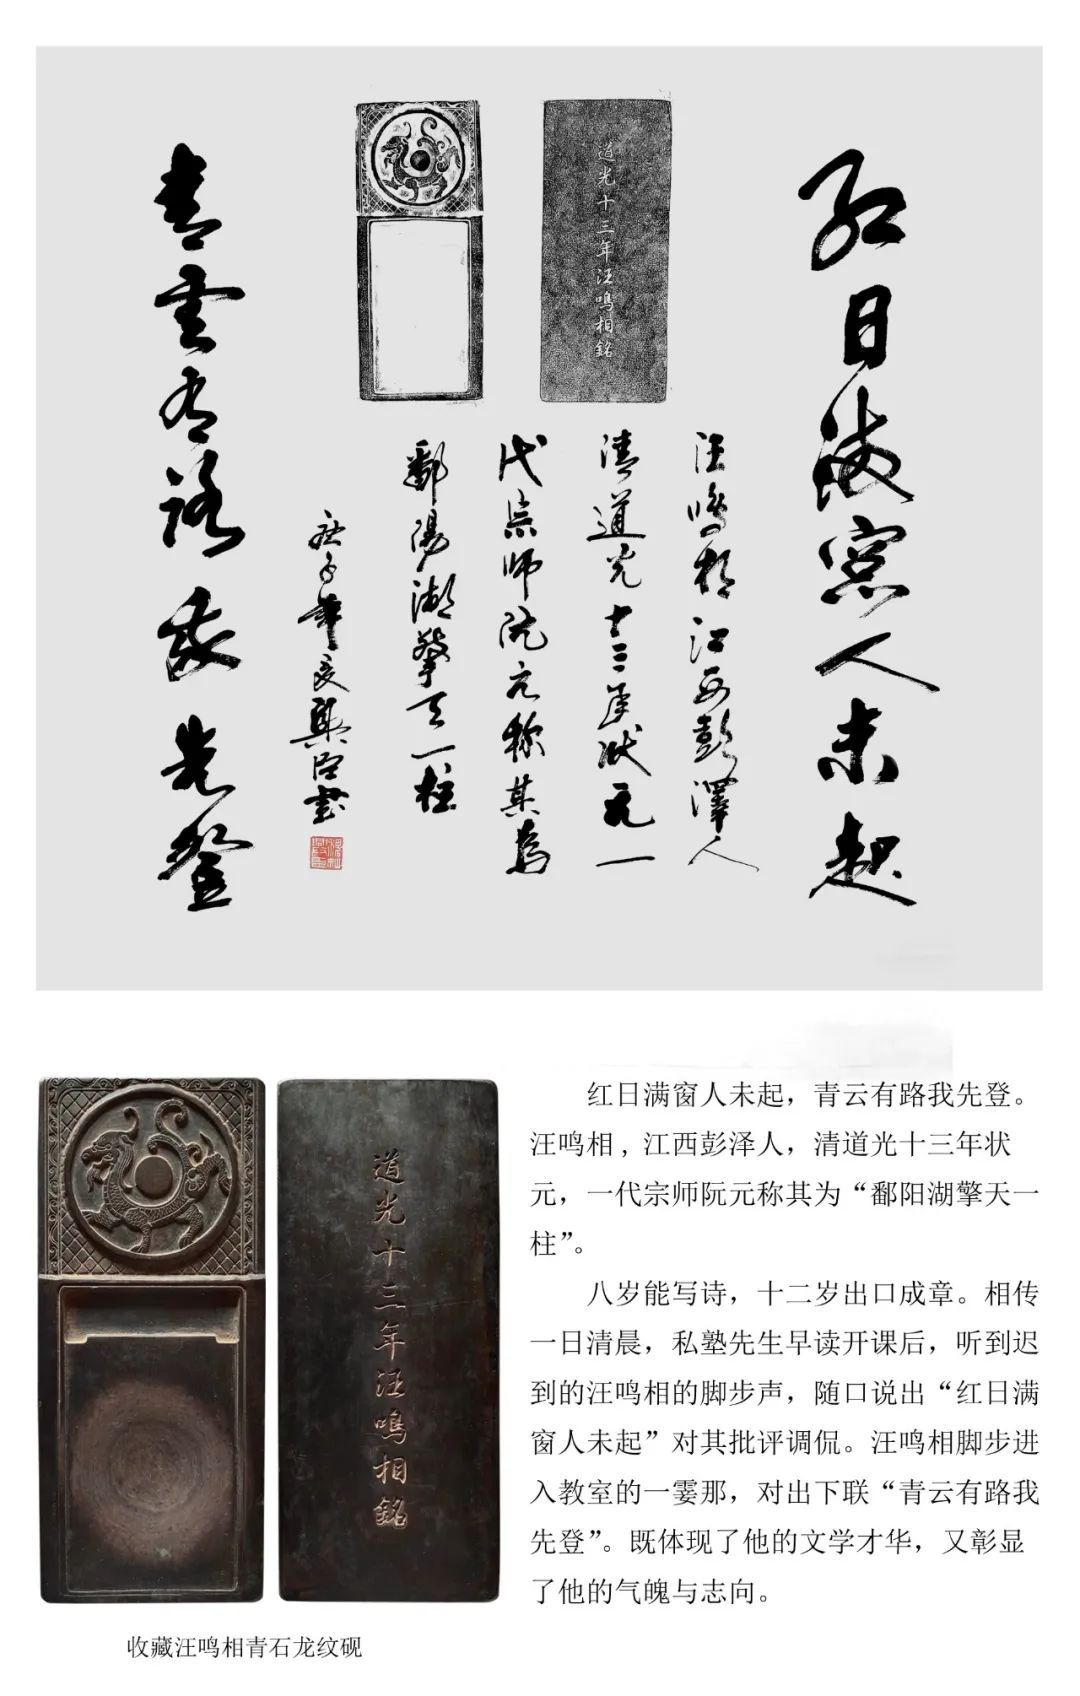 红日满窗人未起
道光十三年汪鳴相銘
汪鸣相江西彭澤人
清道光十三年状元一
代宗师阮元称其为
鄱陽湖擎天一柱
青雲有路我先登
道光十三年汪鳴相銘
红日满窗人未起，青云有路我先登。
汪鸣相，江西彭泽人，清道光十三年状
元，一代宗师阮元称其为“鄱阳湖擎天一
柱”。
八岁能写诗，十二岁出口成章。相传
一日清晨，私塾先生早读开课后，听到迟
到的汪鸣相的脚步声，随口说出“红日满
窗人未起”对其批评调侃。汪鸣相脚步进
入教室的一霎那，对出下联“青云有路我
先登”。既体现了他的文学才华，又彰显
了他的气魄与志向。
收藏汪鸣相青石龙纹砚